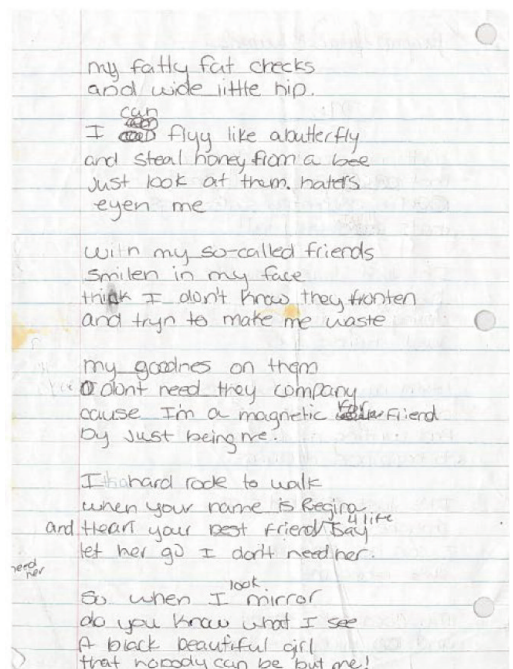 my fatty fat checks
and wide little hip.
can
I flyy like abutterfly
and steal honey from a bee
just look at them. haters
eyen me
with my so-called friends
smilen in my face
think I don't know they fronten
and tryn to make me waste
my goodnes on them
I dont need they company
cause I'm a magnetic friend
by just being me.
I hard rode to walk
when your name is Regina
4 life
and Heart your best friend say
let her go I don't need her.
need
her
look
So when I mirror
do you know what I see
A black beautiful girl
that nobody can be but me!